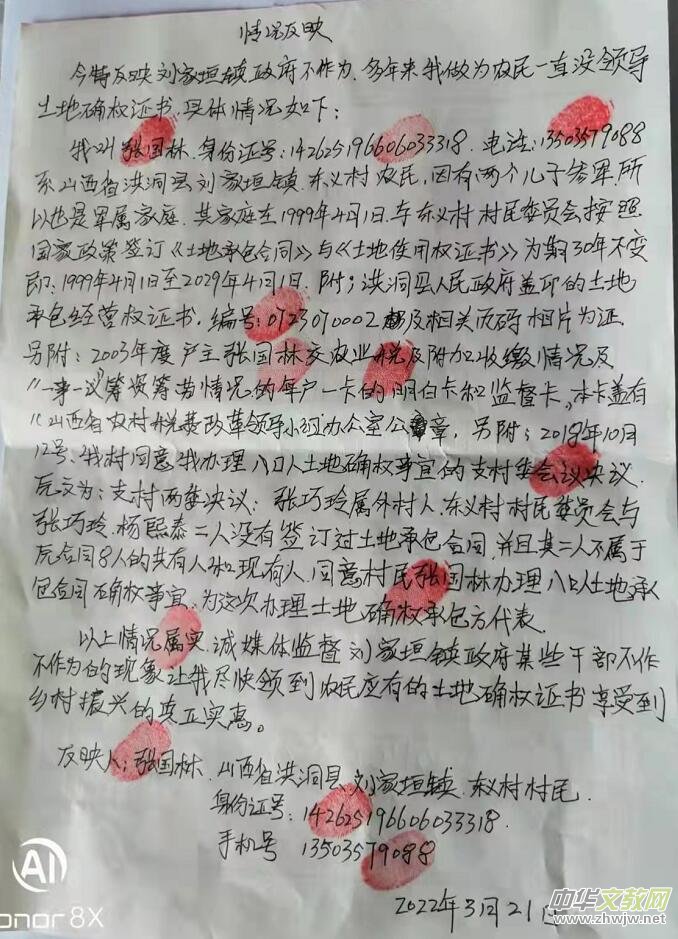 情况反映
今特反映刘家垣镇政府不作为,多年来我做为农民一直没领导
土地确权证书,具体情况如下:
我叫张国林,身份证号:142625196606033318.电话:13503579088
系山西省洪洞县刘家垣镇东义村农民,因有两个儿子参军所
以也是军属家庭.其家庭在1999年4月1日与东义村村民委员会按照
国家政策签订《土地承包合同》与《土地使用权证书》为期30年不变
即:1999年4月1日至2029年4月1日.附;洪洞县人民政府盖印的土地
承包经营权证书,编号:0723070002及相关页码相片为证
另附:2003年度户主张国林交农业税及附加收缴情况及
"一事一议"筹资筹劳情况的每户一卡的明白卡和监督卡,本卡盖有
"山西省农村税费改革领导小组办公室公章,另附:2018年10月
12号、我村同意我办理八口人土地确权事宜的支村委会议决议.
原文为:支村两委决议:张巧玲属外村人,东义村村民委员会与
张巧玲.杨熙泰二人没有签订过土地承包合同,并且其二人不属于
原合同8人的共有人和现有人,同意村民张国林办理八口人土地承
包合同确权事宜,为这次办理土地确权承包方代表.
以上情况属实,诚媒体监督刘家垣镇政府某些干部不作
不作为的现象让我尽快领到农民应有的土地确权证书享受到
乡村振兴的真正实惠。
反映人:张国林.山西省洪洞县刘家垣镇东义村村民.
身份证号:142625196606033318.
手机号 13503579088
2022年3月21日
AI
onor 8X
中华文教网
www.zhwjw.net